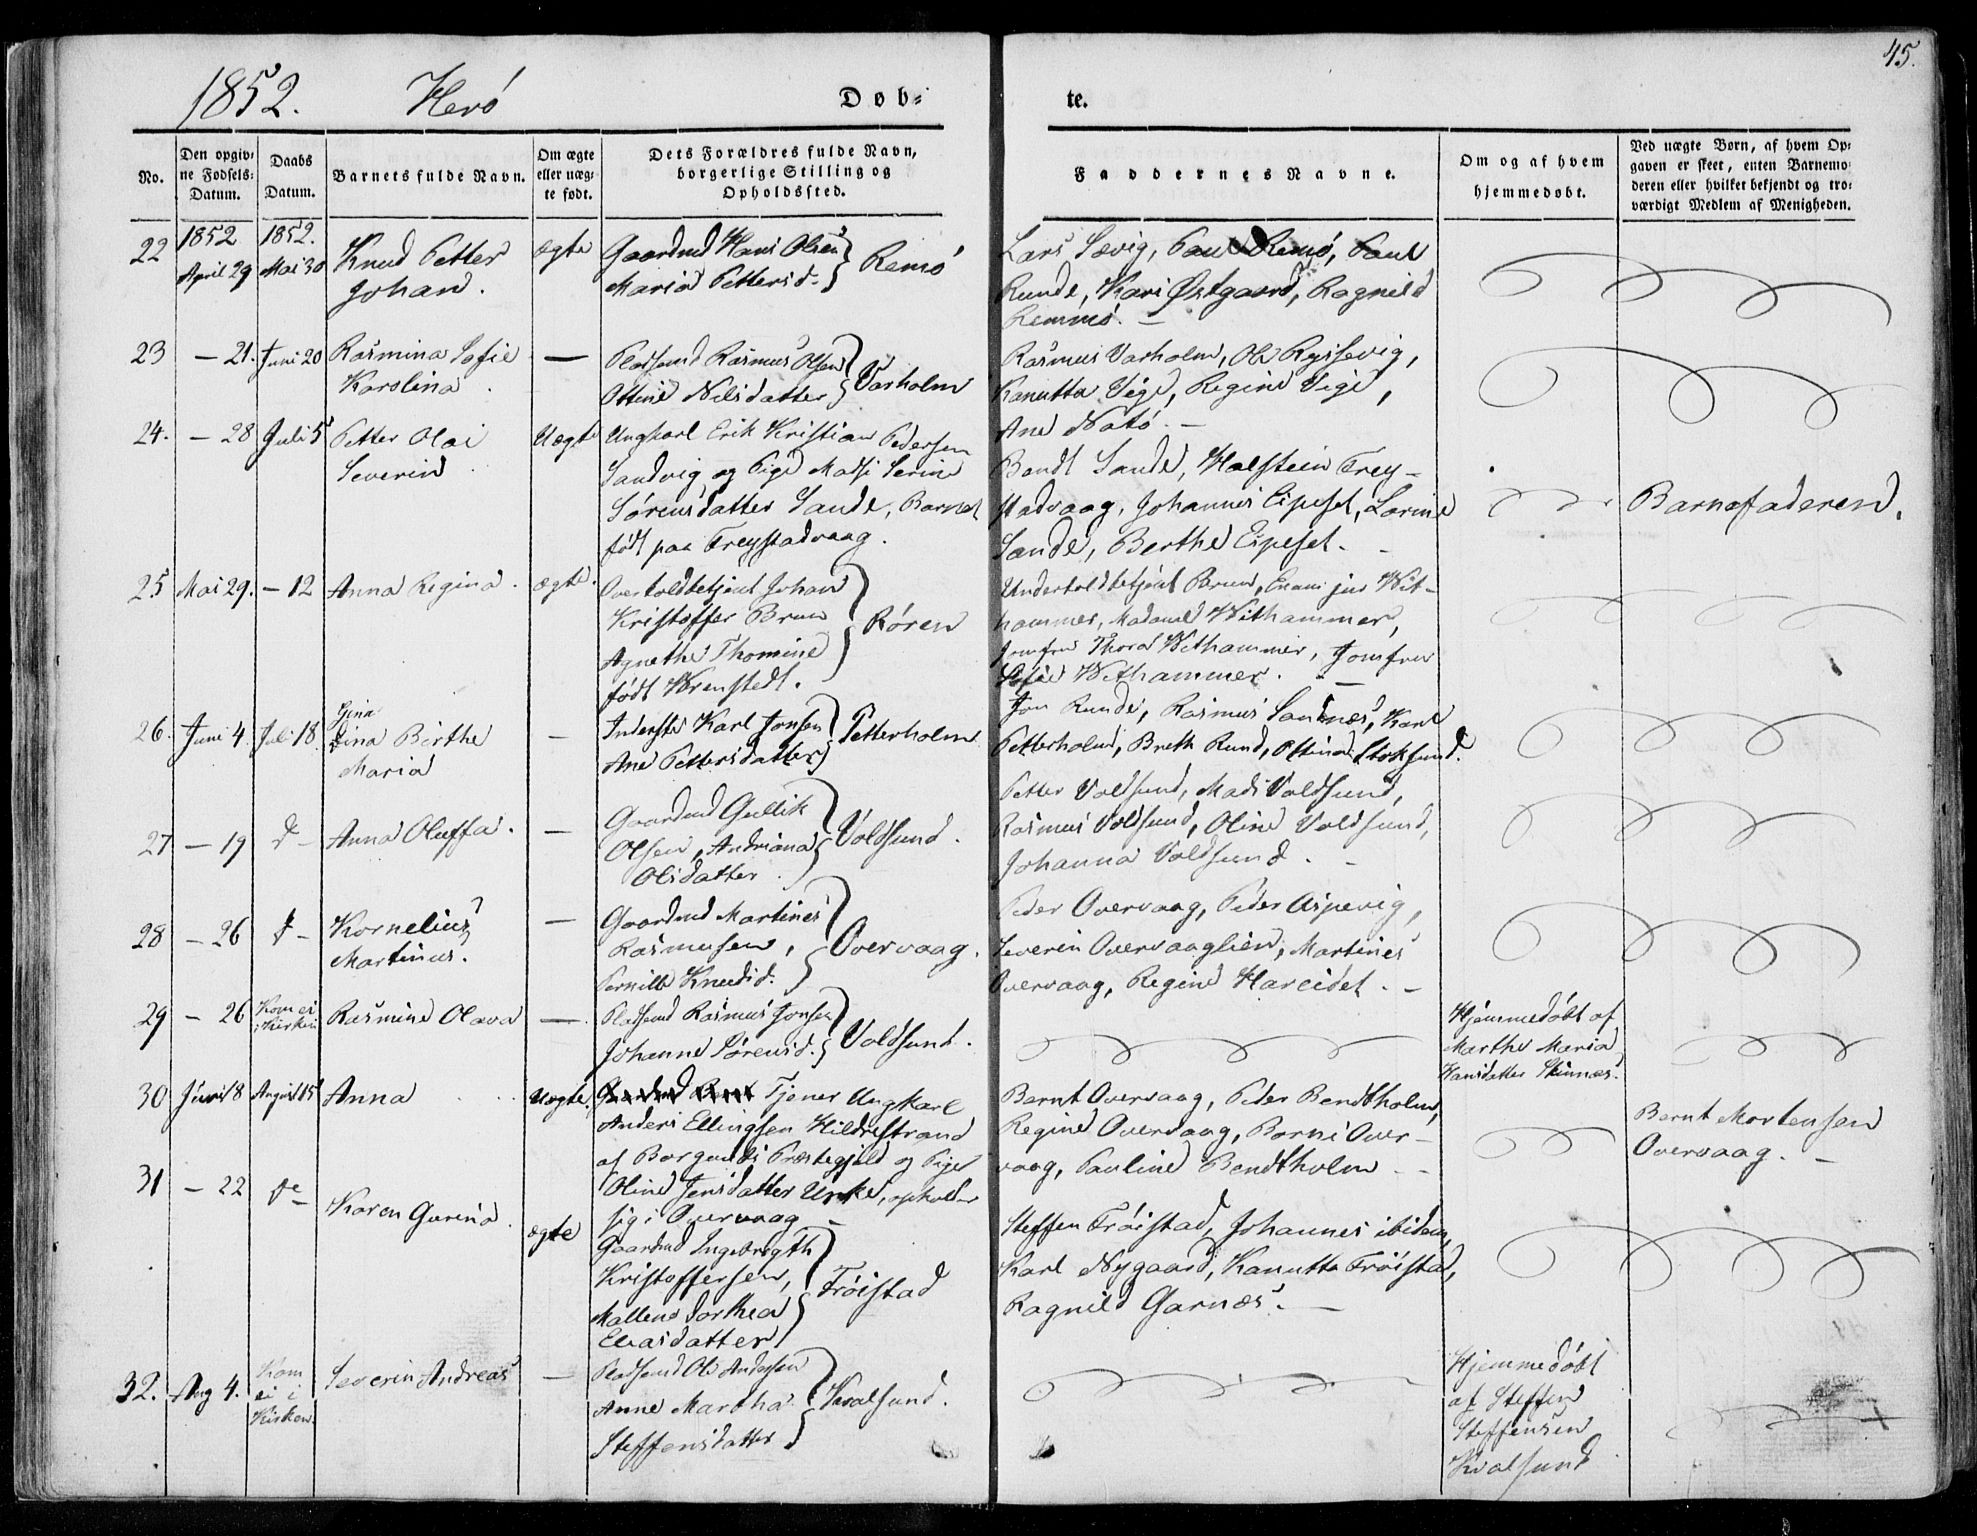 45.
1852. Herö Døb-
te.
No.
Den opgiv-
ne Fødsels-
Datum.
Daabs
Datum.
Barnets fulde Navn.
Om ægte
eller uæg-
te født.
Dets Forældres fulde Navn,
borgerlige Stilling og
Opholdssted.
Faddernes Navne.
Om og af hvem
hjemmedøbt.
Ved uægte Børn, af hvem Op-
gaven er skeet, enten Barnemo-
deren eller hvilket bekjendt og tro-
værdigt Medlem af Menigheden.
22
1852
April 29
1852.
Mai 30
Knud Petter
Johan.
ægte
Gaardmd Hans Olsen
Maria Pettersd.
Remö
Lars Sævig, Paul Remö, Paul
Runde, Kari Østgaard, Ragnild
Remmö. —
23
— 21.
Juni 20
Rasmina Sofie
Karolina.
—
Pladsmd Rasmus Olsen
Ottine Nilsdatter
Varholm
Rasmus Varholm, Ole
Kanutta Vige, Regine Vige,
Ane Natö. —
24.
— 28
Juli 5
Petter Olai
Severin
Uægte
Ungkarl Erik Kristian Pedersen
Sandvig og Pige Madsi Serine
Sörensdatter Sande, Barnet
født paa Freystadvaag.
Bendt Sande, Halstein Frey-
stadvaag, Johannes Eipeset, Lovine
Sande, Berthe Eipeset. -
Barnefaderen.
25
Mai 29.
— 12
Anna Regina.
ægte.
Overtoldbetjent Johan
Kristoffer Brun
Agnethe Thomine
født Wrenstedt.
Rören
Undertoldbetjent Brun, Exam jur Wit-
hammer, Madame Withammer,
Jomfru Thora Withammer, Jomfru
Sofie Withammer. —
26.
Juni 4.
Juli 18
Gina
Lina Birthe
Maria
—
Inderste Karl Jonsen
Ane Pettersdatter
Petterholm
Jon Runde, Rasmus Sandnæs, Karl
Petterholm, Breth Rund, Ottina Stoksund.
27
— 19
d -
Anna Oluffa.
—
Gaardmd Gullik
Olsen, Andriana
Olsdatter.
Voldsund.
Petter Voldsund, Madsi Voldsund,
Rasmus Voldsund, Oline Voldsund,
Johanna Voldsund. -
28
— 26
d -
Kornelius
Martinus.
—
Gaardmd Martines
Rasmusen,
Pernille Knudsd.
Overvaag.
Peder Overvaag, Peder Aspevig,
Severin Overvaaglien, Martines
Overvaag, Regine Hareidet. -
29
— 26
Kom ei
i Kirken
Rasmine Olava
—
Pladsmd Rasmus Jonsen
Johanne Sörensd.
Voldsund.
Hjemmedøbt af
Marthe Maria
Hansdatter
30
Juni 18
August 15
Anna
Uægte.
Tjener Ungkarl
Anders Ellingsen Hildrestrand
af Borgunds Præstegjeld og Pige
Oline Jensdatter Urke, opholder
sig i Overvaag —
Bernt Overvaag, Peder Bendtholm,
Regine Overvaag, Borni Over-
vaag, Pauline Bendtholm. -
Bernt Mortensen
Overvaag. —
31
— 22
de —
Karen Gurina.
ægte
Gaardmd Ingebrigth
Kristoffersen,
Mallene Dorthea
Eliasdatter
Fröistad
Steffen Fröistad, Johannes ibidem,
Karl Nygaard, Kanutta Fröistad,
Ragnild Garnæs. —
32.
Aug 4.
Kom
ei i
Kirken.
Severin Andreas
—
Pladsmd Ole Andersen
Anne Martha
Steffensdatter
Kvalsund.
Hjemmedøbt
af Steffen
Steffensen
Kvalsund